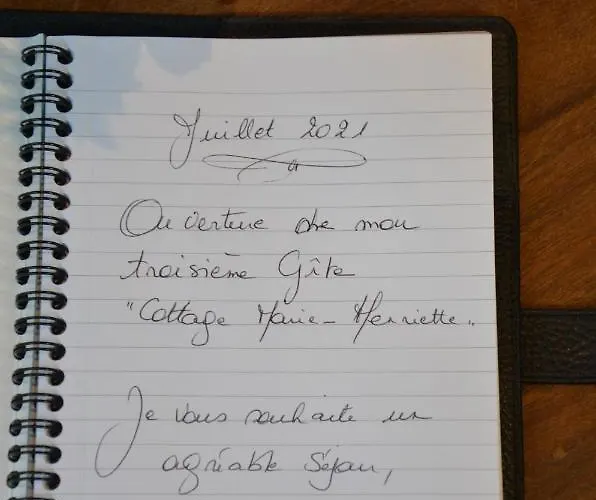 Juillet 2021
Ouverture de mon
troisième Gîte
"Cottage Marie-Henriette"
Je vous souhaite un
agréable Séjour,